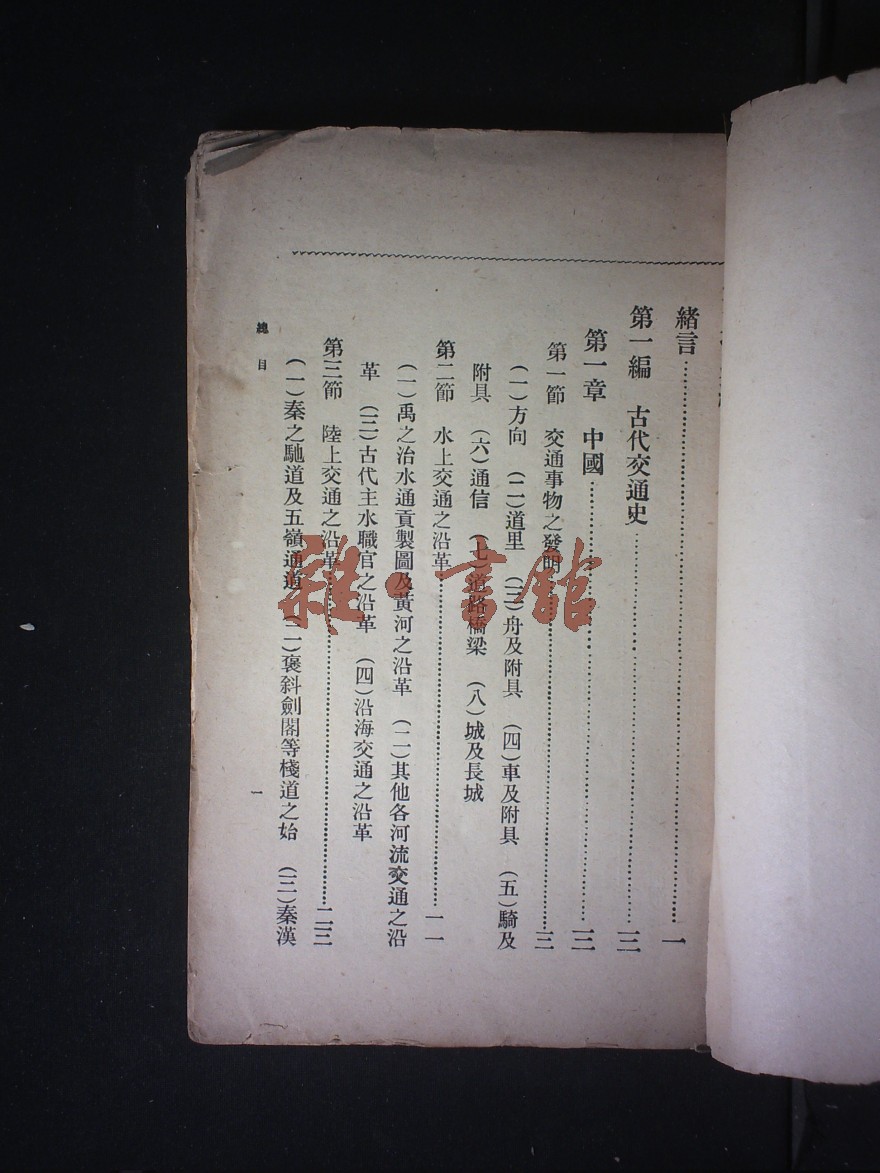 緒言……一
第一編　古代交通史……三
第一章　中國……三
第一節　交通事物之發明……三
（一）方向　（二）道里　（三）舟及附具　（四）車及附具　（五）騎及
附具　（六）通信　（七）道路橋梁　（八）城及長城
第二節　水上交通之沿革……一一
（一）禹之治水通貢製圖及黃河之沿革　（二）其他各河流交通之沿
革　（三）古代主水職官之沿革　（四）沿海交通之沿革
第三節　陸上交通之沿革……二三
（一）秦之馳道及五嶺通道　（二）褒斜劍閣等棧道之始　（三）秦漢
總目
一
雜·書館